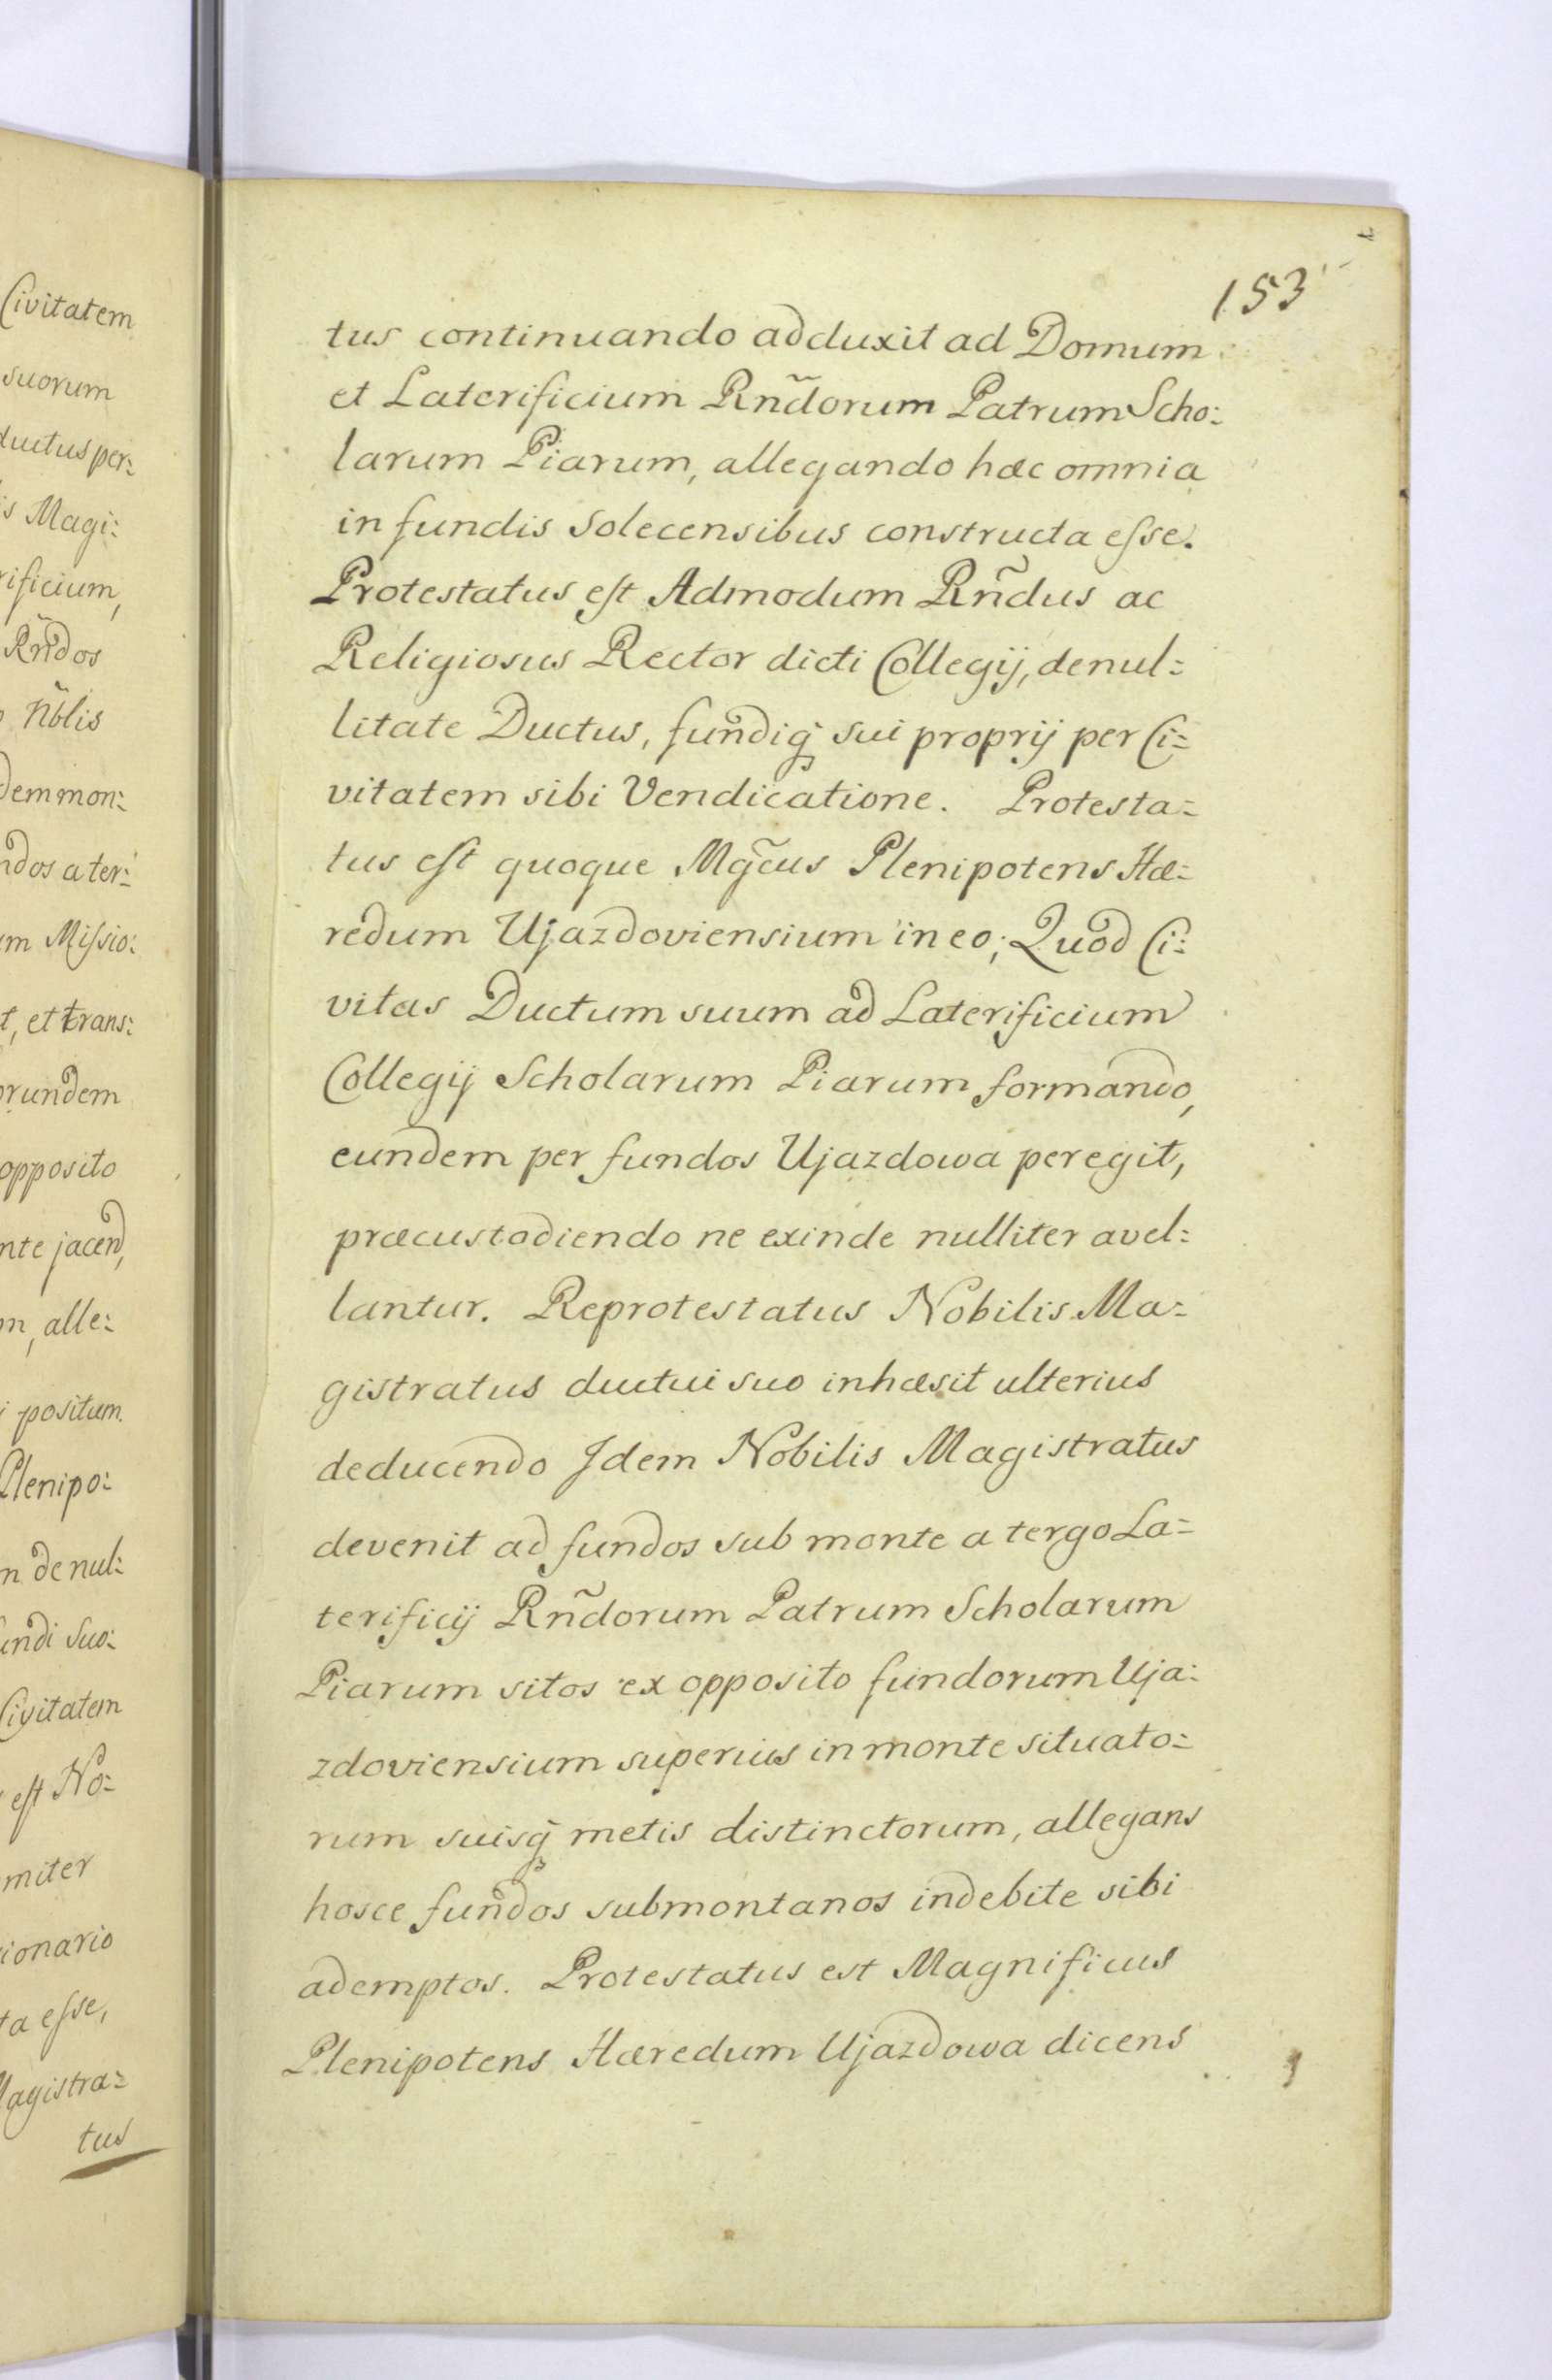 Civitatem
suorum
ductus per:
is Magi:
rificium,
Rñdos
ñblis
dem mon:
ndos a ter:
um Missio:
t, et trans:
orundem
opposito
nte jacend,
m, alle:
i positum.
Plenipo:
n de nul:
undi suo:
Civitatem
est No:
miter
ionario
ta esse,
Magistra=
tus
153
tus continuando adduxit ad Domum
et Laterificium Rñdorum Patrum Scho:
larum Piarum, allegando hæc omnia
in fundis Solecensibus constructa esse.
Protestatus est Admodum Rñdus ac
Religiosus Rector dicti Collegij, de nul=
litate Ductus, fundiq̨ sui proprij per Ci=
vitatem sibi Vendicatione. Protesta=
tus est quoque Mg̃cus Plenipotens Hæ=
redum Ujazdoviensium in eo; Quod Ci:
vitas Ductum suum ad Laterificium
Collegij Scholarum Piarum formando,
eundem per fundos Ujazdowa peregit,
præcustodiendo ne exinde nulliter avel:
lantur. Reprotestatus Nobilis Ma=
gistratus ductui suo inhæsit ulterius
deducendo Idem Nobilis Magistratus
devenit ad fundos sub monte a tergo La=
terificij Rñdorum Patrum Scholarum
Piarum sitos ex opposito fundorum Uja:
zdoviensium superius in monte situato=
rum suisq̨ metis distinctorum, allegans
hosce fundos submontanos indebite sibi
ademptos. Protestatus est Magnificus
Plenipotens Hæredum Ujazdowa dicens